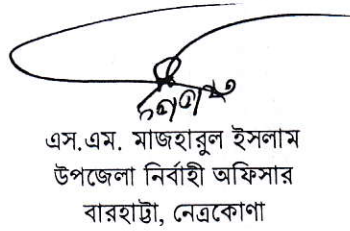 এস.এম. মাজহারুল ইসলাম
উপজেলা নির্বাহী অফিসার
বারহাট্টা, নেত্রকোণা